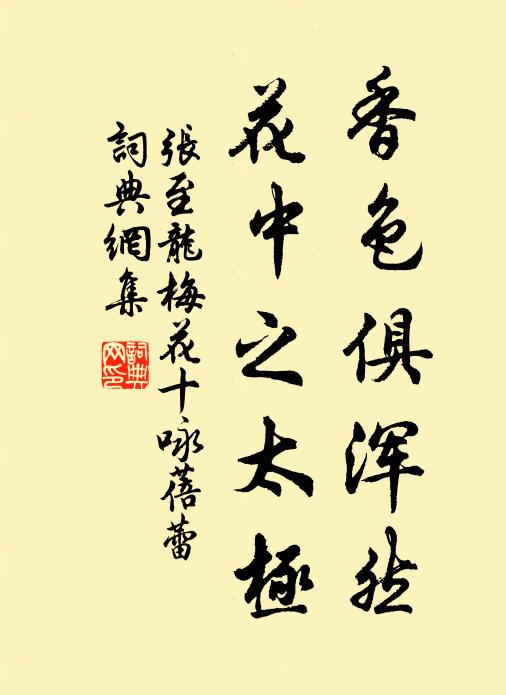 香色俱浑然
花中之太極
張至龍梅花十咏蓓蕾
詞典網集
詞典
网印